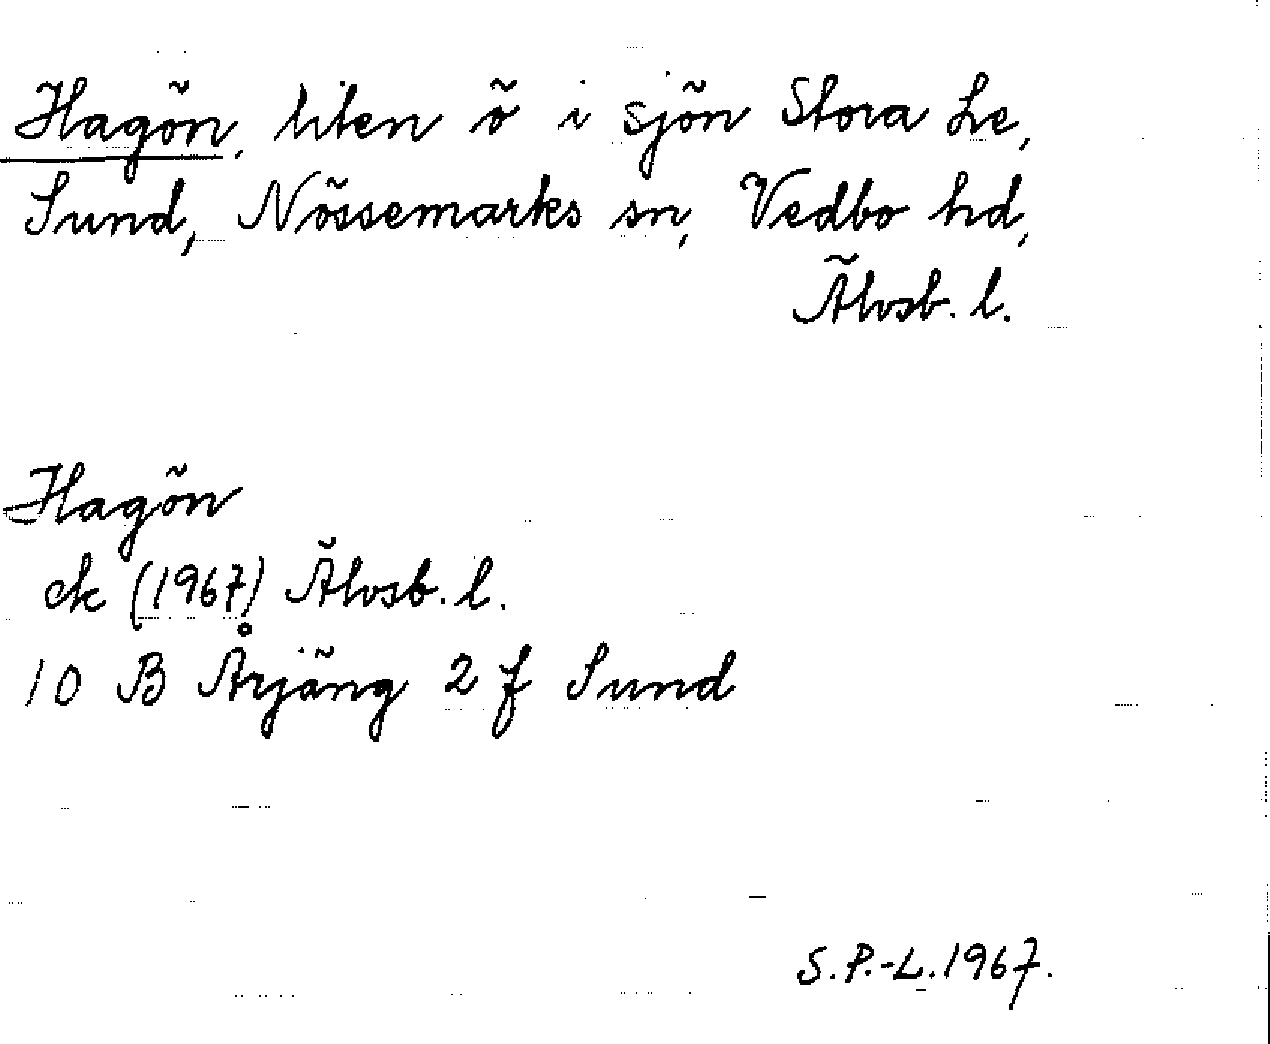 Hagön, liten ö i sjön Stora Le,
Sund, Nössemarks sn, Vedbo hd,
Älvsb. l.
Hagön
ek (1967) Älvsb. l.
10 B Årjäng 2 f Sund
S.P.-L. 1967.